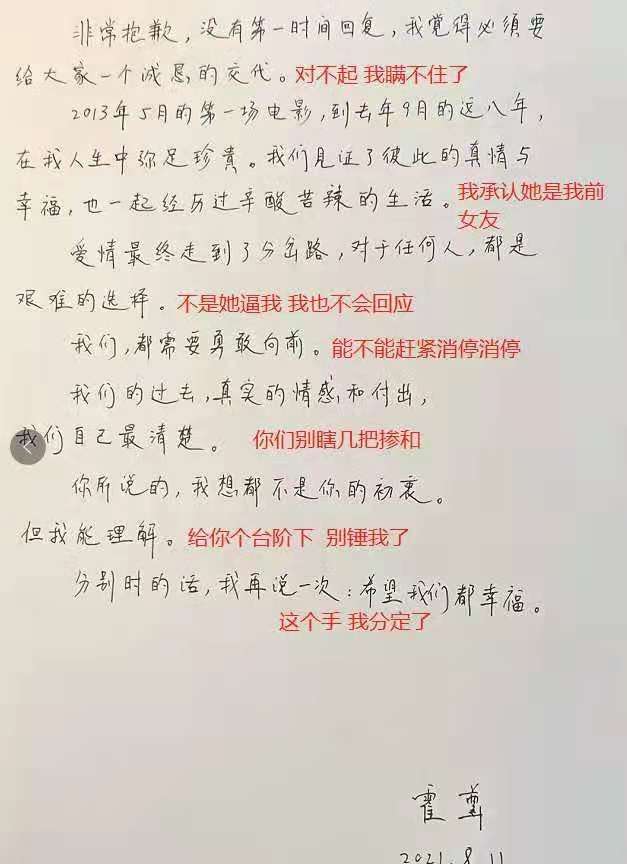 非常抱歉，没有第一时间回复，我觉得必须要
给大家一个诚恳的交代。对不起 我瞒不住了
2013年5月的第一场电影，到去年9月的这八年，
在我人生中弥足珍贵。我们见证了彼此的真情与
幸福，也一起经历过辛酸苦辣的生活。我承认她是我前
女友
爱情最终走到了分岔路，对于任何人，都是
艰难的选择。不是她逼我 我也不会回应
我们，都需要勇敢向前。能不能赶紧消停消停
我们的过去，真实的情感和付出，
我们自己最清楚。你们别瞎几把掺和
你所说的，我想都不是你的初衷。
但我能理解。给你个台阶下 别锤我了
分别时的话，我再说一次：希望我们都幸福。
这个手 我分定了
霍尊
2021.8.11